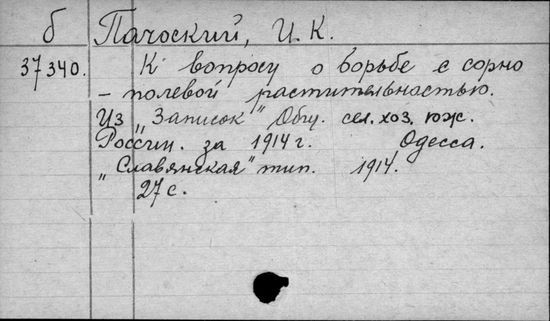 б Пачоский, И. К.
37340. К вопросу о борьбе с сорно
- полевой растительностью.
Из „Записок" Общ. сел. хоз. юж.
России. за 1914 г. Одесса.
„Славянская" тип. 1914.
27 с.